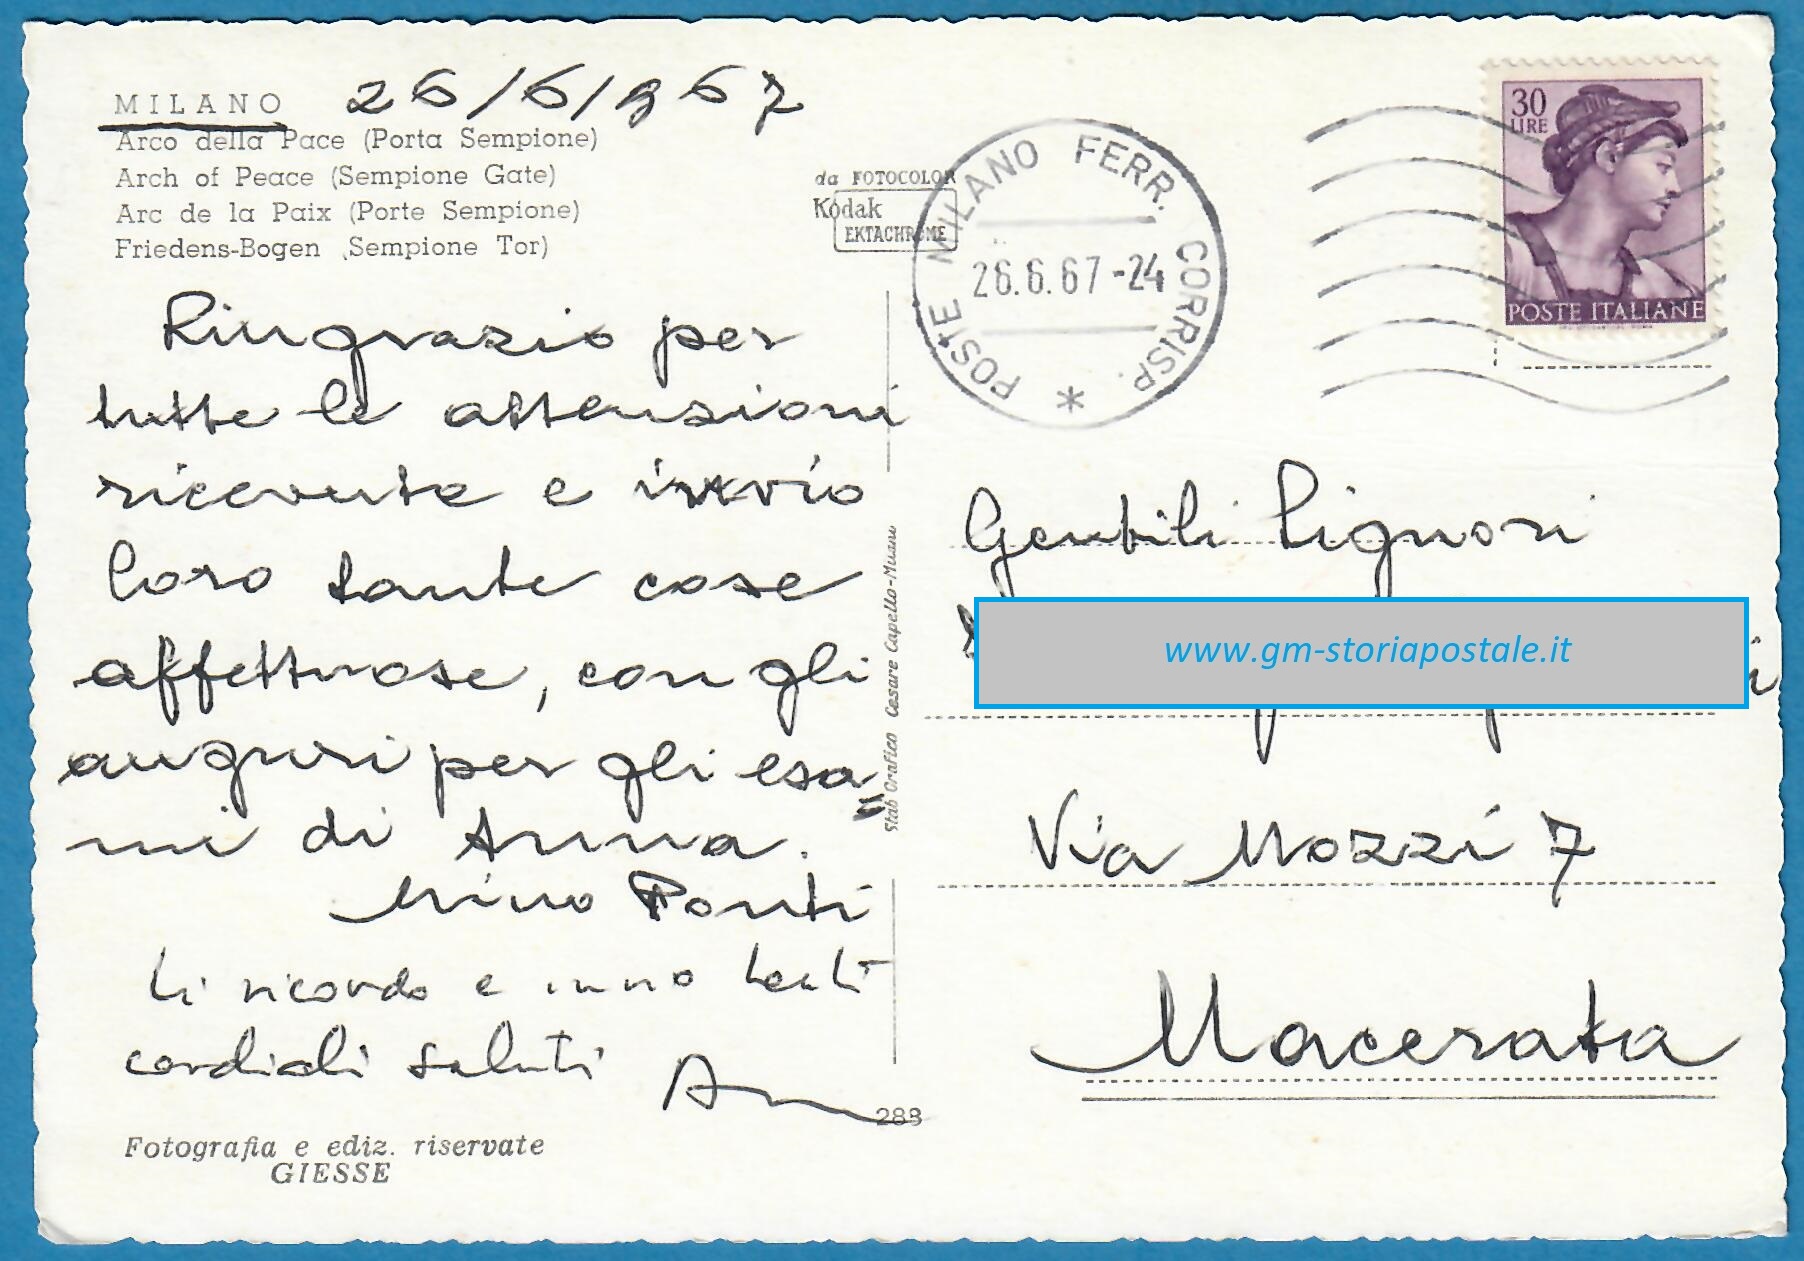 MILANO 26/6/967
Arco della Pace (Porta Sempione)
Arch of Peace (Sempione Gate)
Arc de la Paix (Porte Sempione)
Friedens-Bogen (Sempione Tor)
da FOTOCOLOR
Kodak
EKTACHROME
POSTE MILANO FERR. CORRISP. *
26.6.67-24
30
LIRE
POSTE ITALIANE
Ringrazio per
tutte le attenzioni
ricevute e invio
loro tante cose
affettuose, con gli
auguri per gli esa=
mi di Anna.
Mino Ponti
Li ricordo e invio tanti
cordiali saluti
Stab Grafico Cesare Capello-Milano
Gentili Signori
www.gm-storiapostale.it
Via Mozzi 7
Macerata
288
Fotografia e ediz. riservate
GIESSE